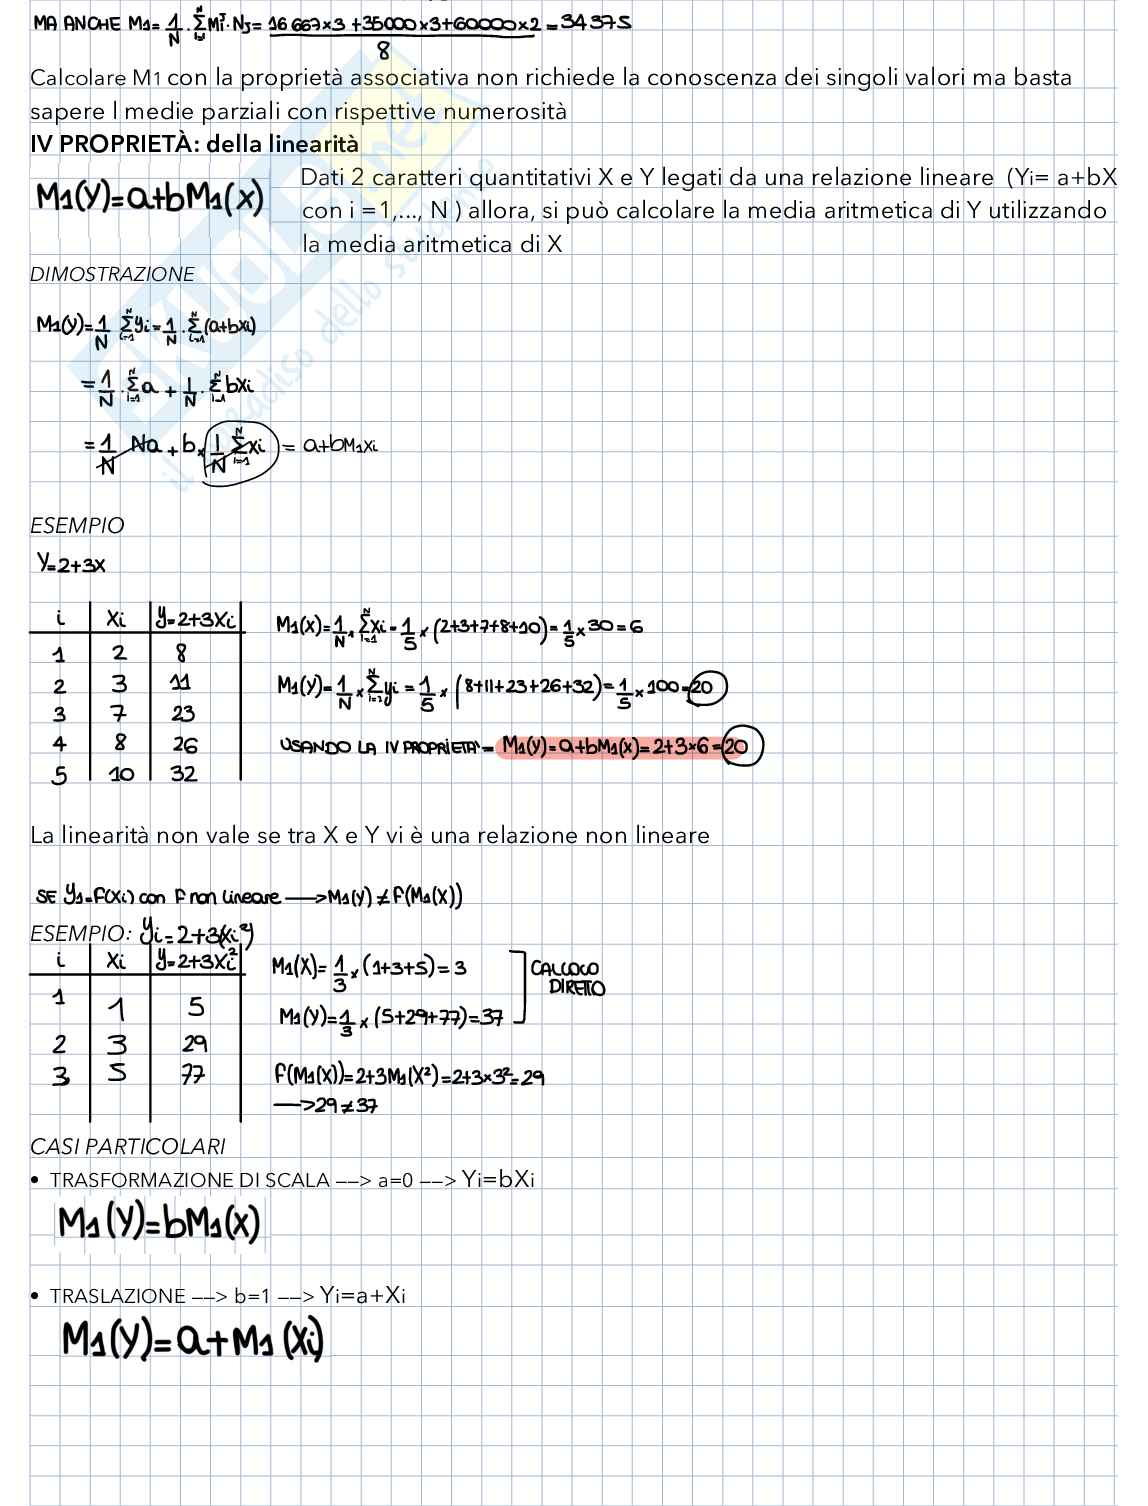 MA ANCHE M1= 1/N · Σ(i=1, N) Mi · Nj = (16 667×3 +35000×3+60000×2)/8 = 34 375
Calcolare M1 con la proprietà associativa non richiede la conoscenza dei singoli valori ma basta
sapere l medie parziali con rispettive numerosità
IV PROPRIETÀ: della linearità
M1(Y)=a+bM1(X)
Dati 2 caratteri quantitativi X e Y legati da una relazione lineare (Yi= a+bX
con i =1,..., N ) allora, si può calcolare la media aritmetica di Y utilizzando
la media aritmetica di X
DIMOSTRAZIONE
M1(Y)= 1/N Σ(i=1, N) yi = 1/N · Σ(i=1, N) (a+bxi)
= 1/N · Σ(i=1, N) a + 1/N · Σ(i=1, N) bxi
= 1/N Na + b × 1/N Σ(i=1, N) xi = a+bM1xi
ESEMPIO
Y=2+3X
i Xi y=2+3Xi
1 2 8
2 3 11
3 7 23
4 8 26
5 10 32
M1(X)= 1/N × Σ(i=1, N) xi = 1/5 × (2+3+7+8+10)= 1/5 × 30 = 6
M1(Y)= 1/N × Σ(i=1, N) yi = 1/5 × (8+11+23+26+32)= 1/5 × 100 = 20
USANDO LA IV PROPRIETA' = M1(Y)=a+bM1(X)=2+3×6=20
La linearità non vale se tra X e Y vi è una relazione non lineare
SE y1=f(Xi) con f non lineare --> M1(Y) ≠ f(M1(X))
ESEMPIO: yi=2+3(xi²)
i Xi y=2+3Xi²
1 1 5
2 3 29
3 5 77
M1(X)= 1/3 × (1+3+5)= 3
M1(Y)= 1/3 × (5+29+77)=37
CALCOLO
DIRETTO
f(M1(X))=2+3M1(X²)=2+3×3²=29
-->29≠37
CASI PARTICOLARI
• TRASFORMAZIONE DI SCALA --> a=0 --> Yi=bXi
M1(Y)=bM1(X)
• TRASLAZIONE --> b=1 --> Yi=a+Xi
M1(Y)=a+M1(Xi)